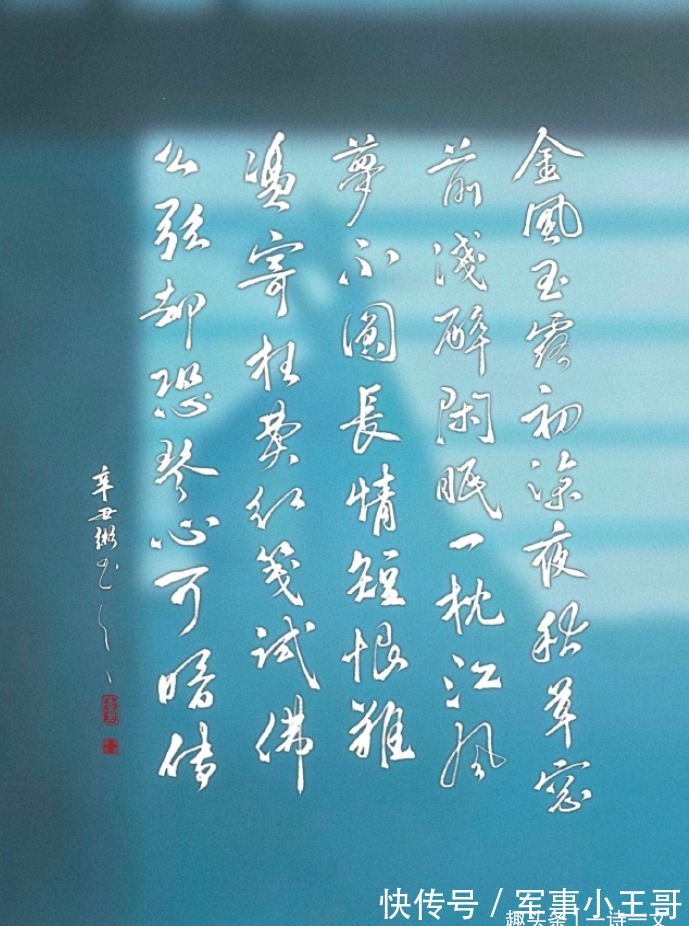 金風玉露初涼夜秋草窗
前淺醉閑眠一枕江風
夢不圓長情短恨難
憑寄枉費紅箋試拂
幺弦却恐琴心可暗傳
辛丑
快传号／军事小王哥
趣头条 | 一诗一文